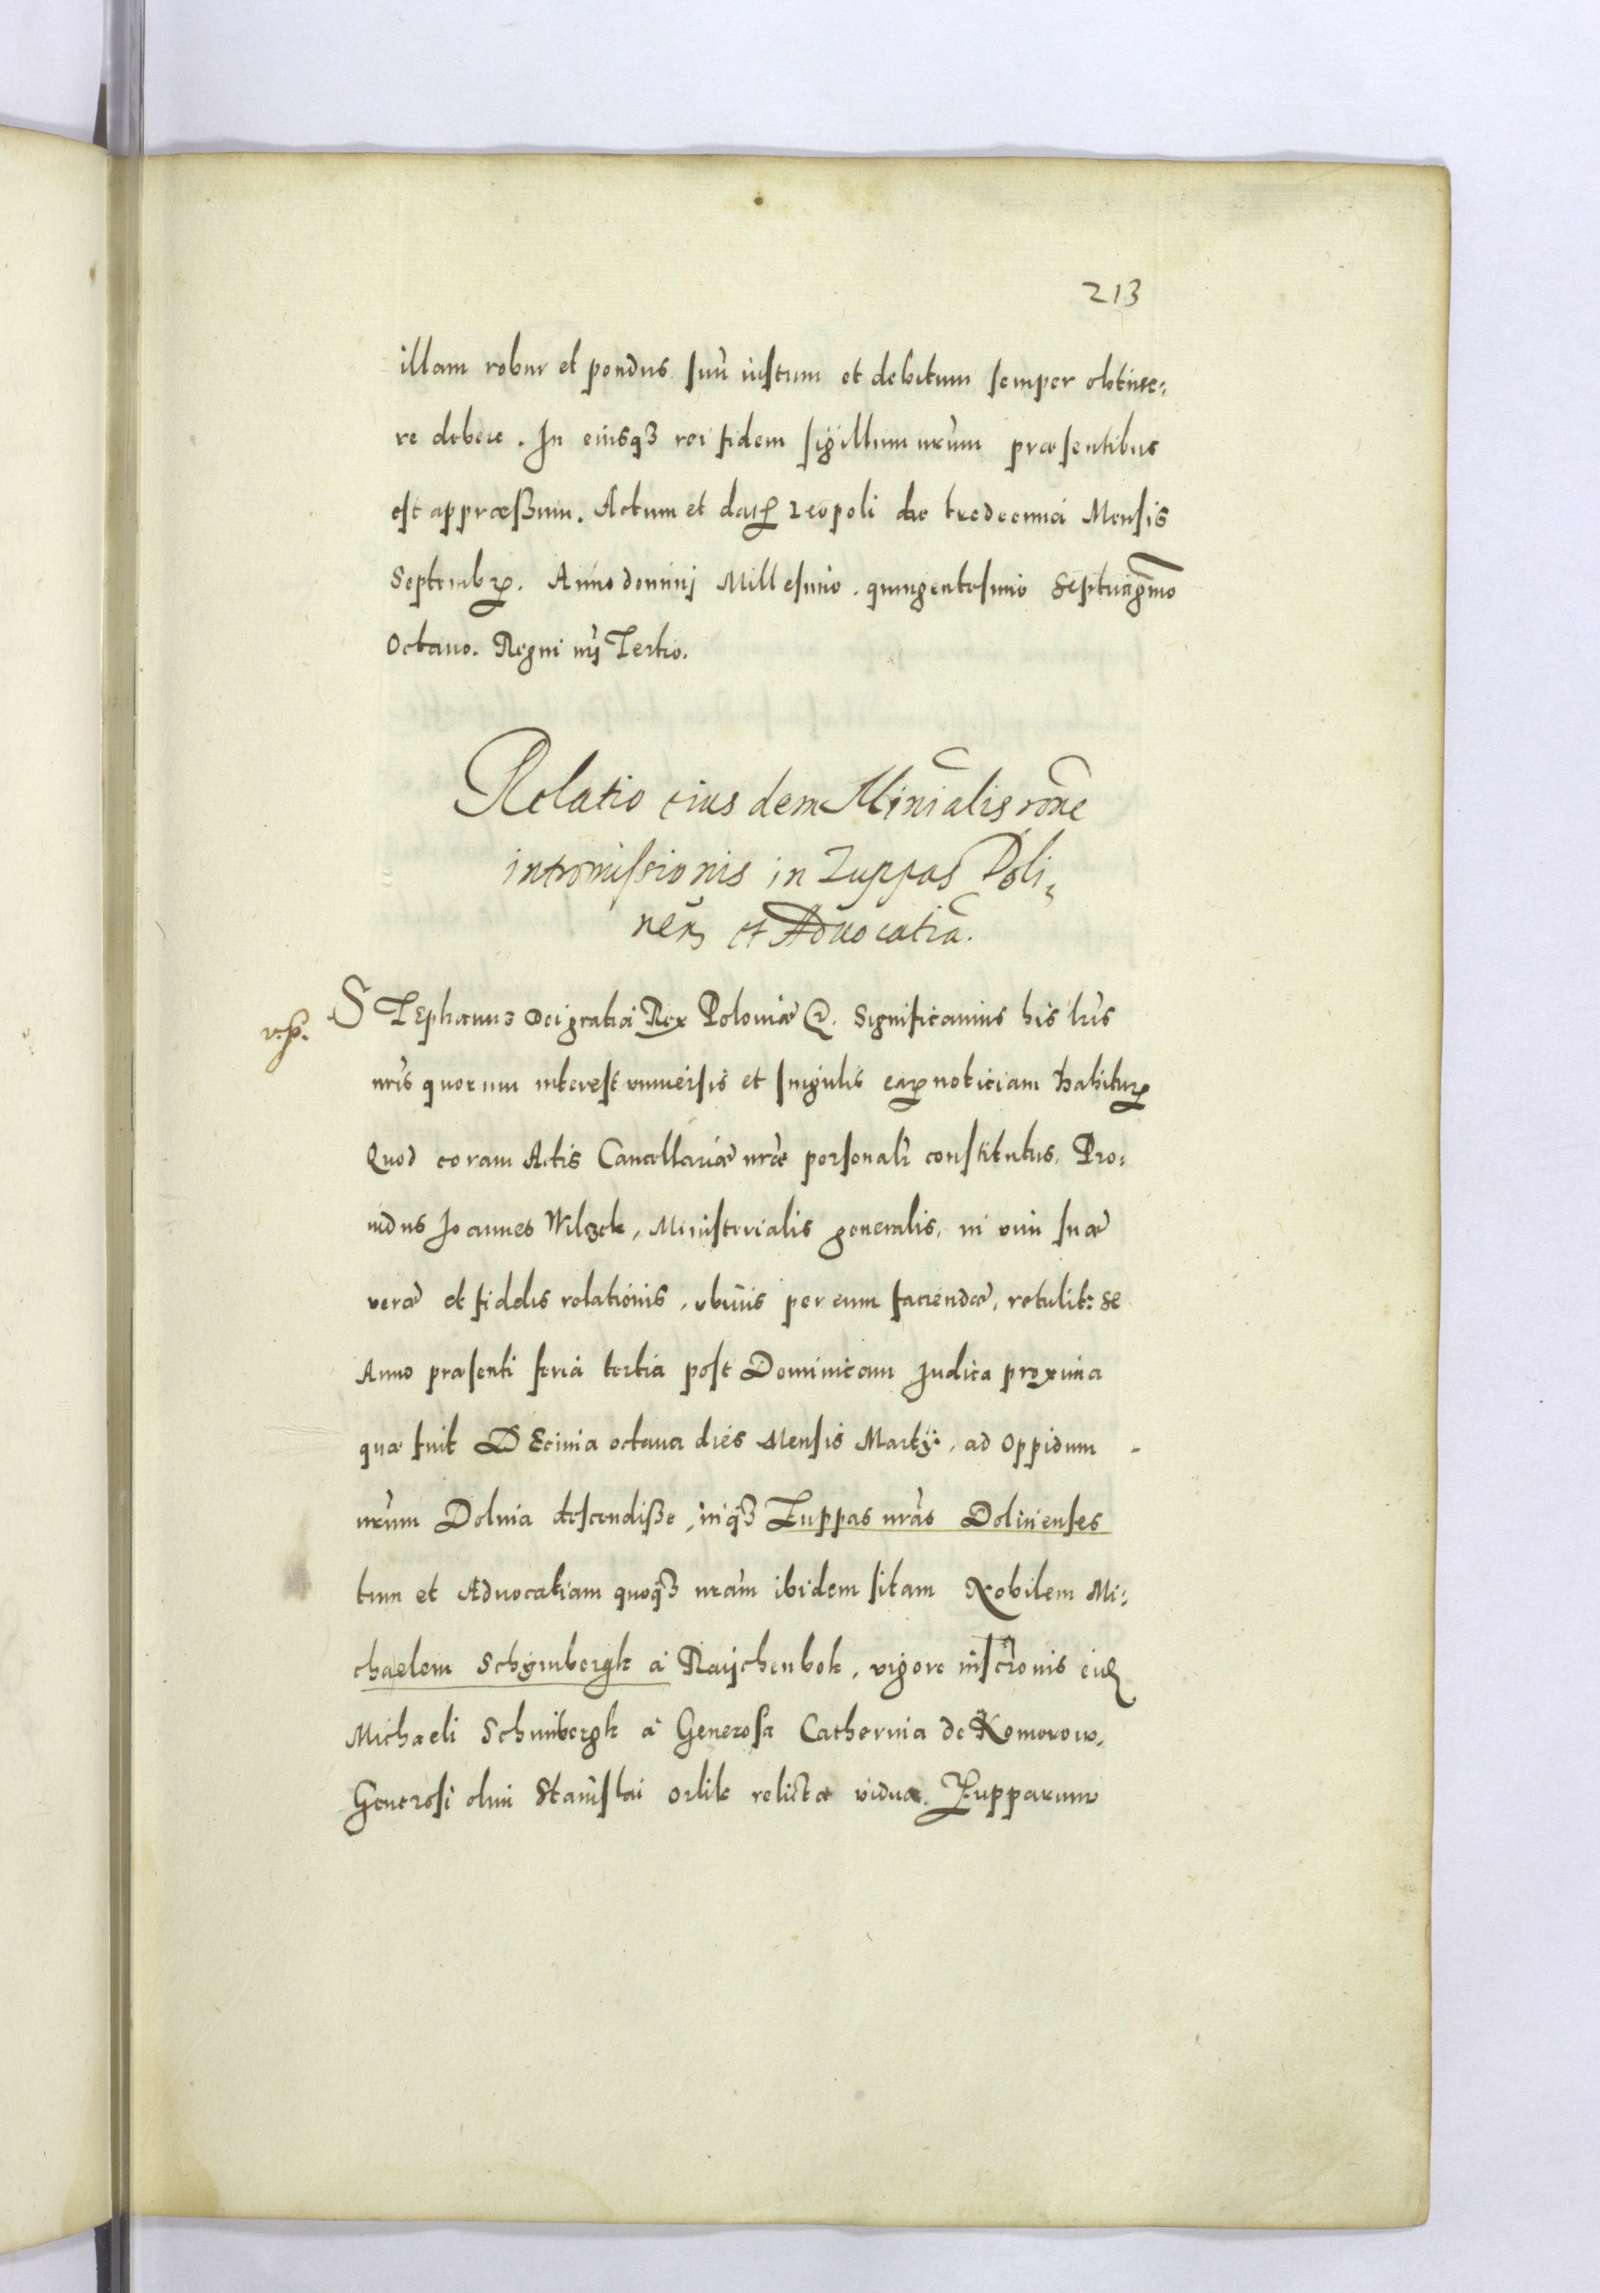 213
illam robur et pondus suũ iustum et debitum semper obtine:
re debere. In eiusqȝ rei fidem sigillum nr̃um præsentibus
est appræssum. Actum et datꝝ Leopoli die tredecima Mensis
Septembꝝ. Anno domini Millesimo. quingentesimo Septuag̃mo
Octauo. Regni nr̃j Tertio.
Relatio eius dem Min̄ialis rõne
intromissionis in Zuppas Doli,
neñ et Aduocatiã.
v.p.
STEphanus Dei gratia Rex Poloniæ @. Significamus his lr̃is
nr̃is quorum interest vniuersis et singulis eaꝝ noticiam habituꝝ
Quod coram Actis Cancellariæ nr̃æ personalr̃ constitutus. Pro:
uidus Joannes Wilczek, Ministerialis generalis, in vim suæ
veræ et fidelis relationis, vbiuis per eum faciendæ, retulit: se
Anno præsenti feria tertia post Dominicam Judica proxima
quæ fuit DEcima octaua dies Mensis Martij, ad Oppidum
nr̃um Dolina descendisse, inqȝ Zuppas nr̃as Dolinenses
tum et Aduocatiam quoqȝ nr̃am ibidem sitam Nobilem Mi:
chaelem Schymbergk à Raychenbok, vigore inscr̃onis eid̃
Michaeli Schimbergk à Generosa Catherina de Komorow,
Generosi olim Stanislai Orlik relictæ vidua. Zupparum